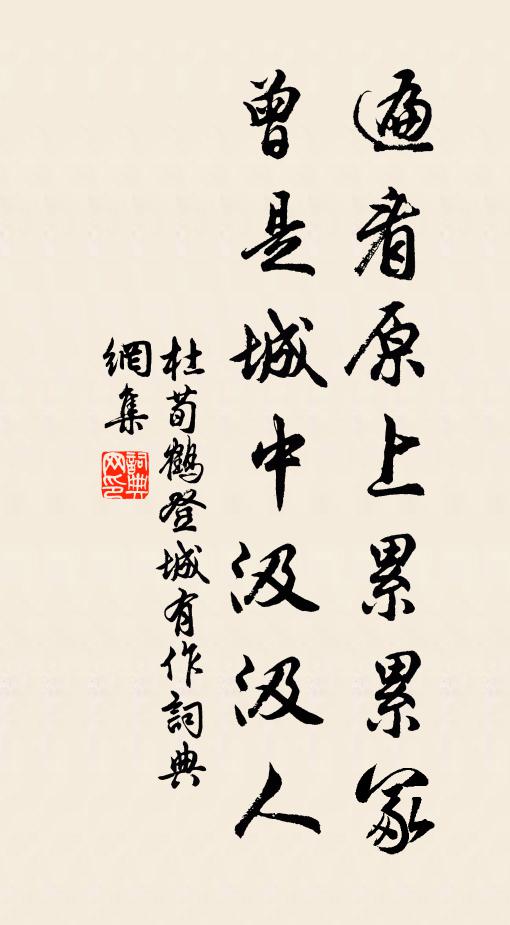 遍看原上累累冢
曾是城中汲汲人
杜荀鶴登城有作詞典
網集
詞典
网印